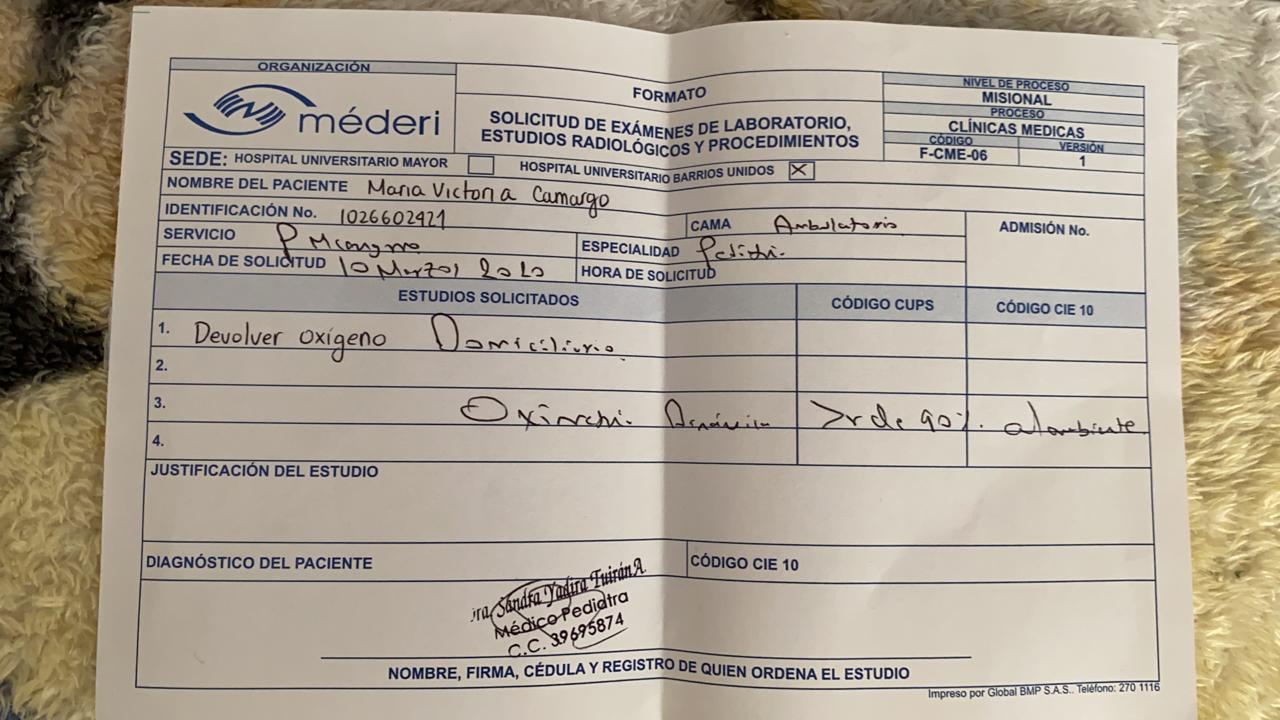 ORGANIZACIÓN
méderi
FORMATO
SOLICITUD DE EXÁMENES DE LABORATORIO,
ESTUDIOS RADIOLÓGICOS Y PROCEDIMIENTOS
NIVEL DE PROCESO
MISIONAL
PROCESO
CLÍNICAS MEDICAS
CÓDIGO VERSIÓN
F-CME-06 1
SEDE: HOSPITAL UNIVERSITARIO MAYOR HOSPITAL UNIVERSITARIO BARRIOS UNIDOS X
NOMBRE DEL PACIENTE Maria Victoria Camargo
IDENTIFICACIÓN No. 1026602921 CAMA Ambulatorio ADMISIÓN No.
SERVICIO P Mcanguro ESPECIALIDAD
FECHA DE SOLICITUD 10 Marzo, 2020 HORA DE SOLICITUD
ESTUDIOS SOLICITADOS CÓDIGO CUPS CÓDIGO CIE 10
1. Devolver oxígeno Domiciliario
2.
3. Dinámica de 90%. al ambiente
4.
JUSTIFICACIÓN DEL ESTUDIO
DIAGNÓSTICO DEL PACIENTE CÓDIGO CIE 10
Dra. Sandra Yadira Tuirán A.
Médico Pediatra
C.C. 39695874
NOMBRE, FIRMA, CÉDULA Y REGISTRO DE QUIEN ORDENA EL ESTUDIO
Impreso por Global BMP S.A.S.. Teléfono: 270 1116